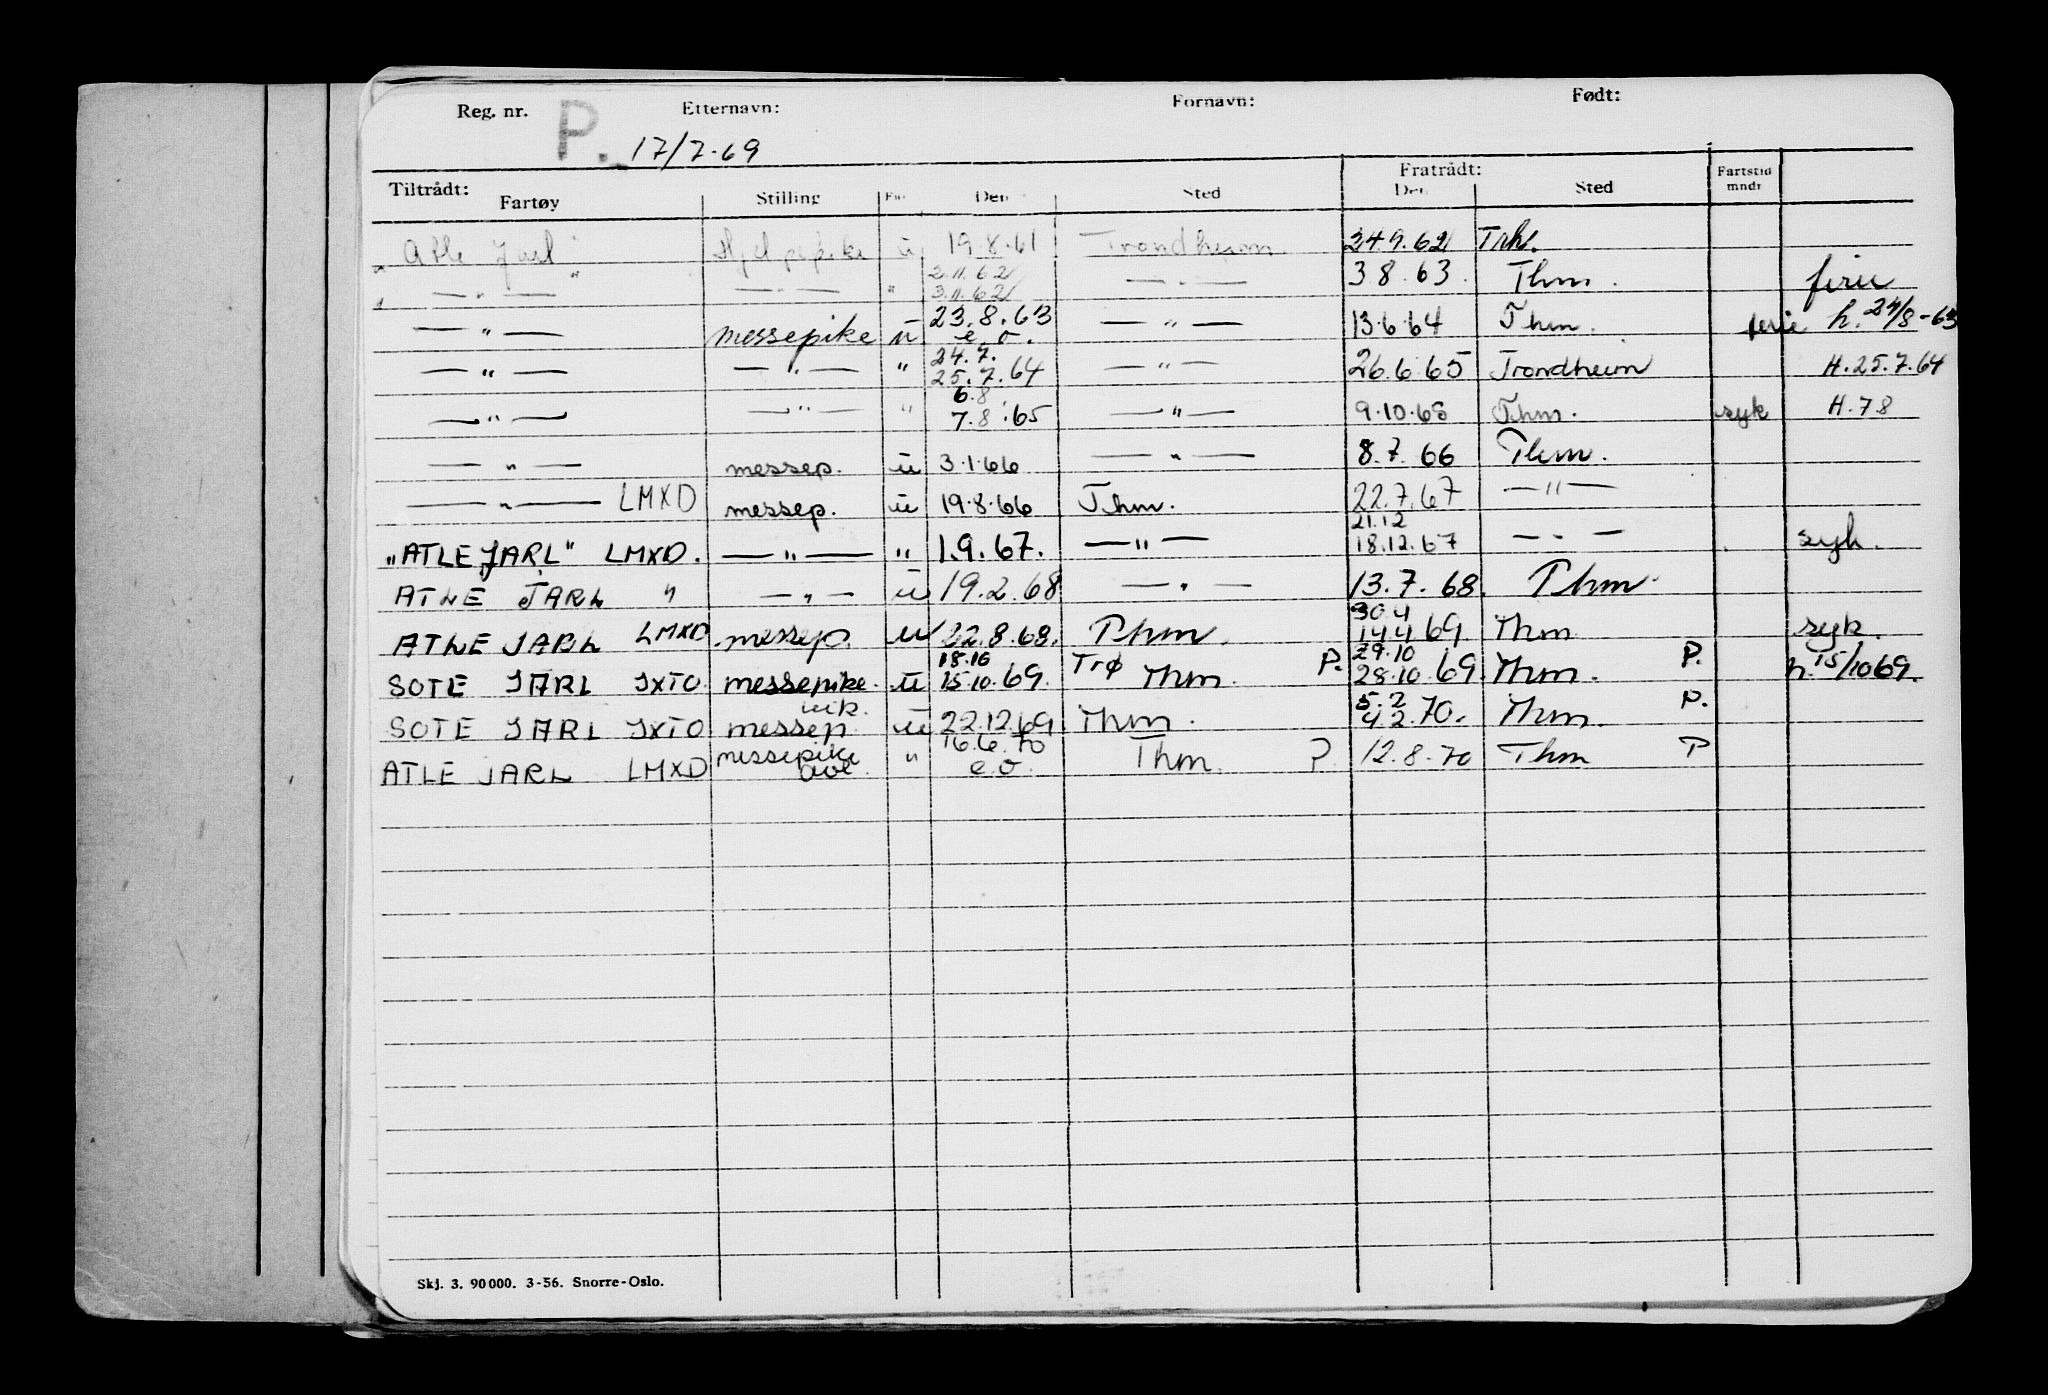 Reg. nr. P. Etternavn: Fornavn: Født:
17/7-69
Tiltrådt: Fratrådt: Fartstid mndr
Fartøy Stilling Den Sted Den Sted
"Atle Jarl" Hjelpepike u 19.8.61 Trondheim 24.9.62 Trh.
— " — — " — " 2.11.62 3.11.62 — " — 3.8.63. Thm. ferie
— " — messepike u 23.8.63 e.o. — " — 13.6.64 Thm. ferie h. 24/8-63
— " — — " — " 24.7. 25.7.64 — " — 26.6.65 Trondheim H.25.7.64
— " — — " — " 6.8 7.8.65 — " — 9.10.65 Thm. syk H.7 8
— " — messep. u 3.1.66 — " — 8.7.66 Thm.
— " — LMXD messep. u 19.8.66 Thm. 22.7.67 — " —
"ATLE JARL" LMXD. — " — " 1.9.67. — " — 21.12 18.12.67 — " — syk.
ATLE JARL " — " — u 19.2.68 — " — 13.7.68. Thm
ATLE JARL LMXD messep. u 22.8.68. Thm. 30.4 14.4 69 Thm syk.
SOTE JARL JXTO messepike. u 18.10 15.10.69. Trø Thm. P. 29.10 28.10 69 Thm. P. h. 15/10 69.
SOTE JARL JXTO messep. vik. u 22.12.69 Thm. 5.2 4 2.70. Thm. P.
ATLE JARL LMXD messepike " 16.6.70 e.o. Thm. P. 12.8.70 Thm P
Skj. 3. 90000. 3-56. Snorre-Oslo.